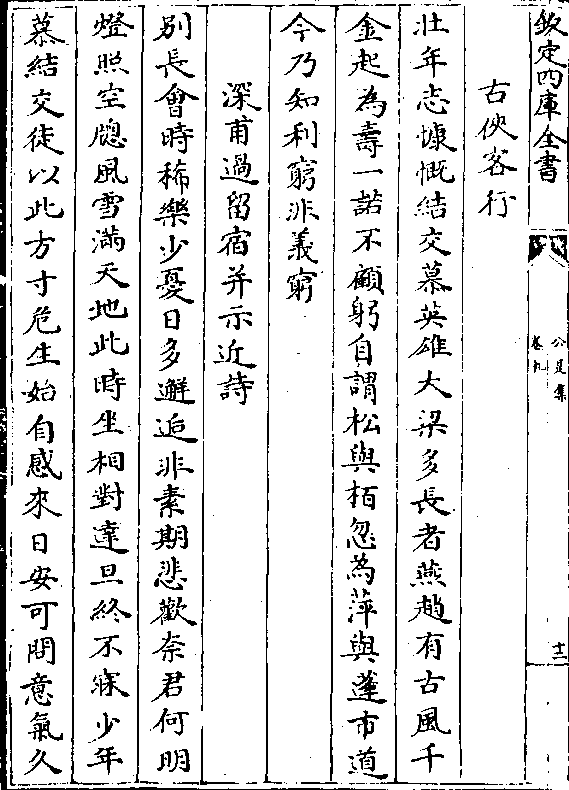 欽定四庫全書
公是集
卷九
十二
古俠客行
壯年志慷慨結交慕英雄大梁多長者燕趙有古風千
金起為壽一諾不顧躬自謂松與栢忽為萍與蓬市道
今乃知利窮非義窮
深甫過留宿并示近詩
別長會時稀樂少憂日多邂逅非素期悲歡奈君何明
燈照空牕風雪滿天地此時坐相對達旦終不寐少年
慕結交徒以此方寸危生始自感來日安可問意氣久